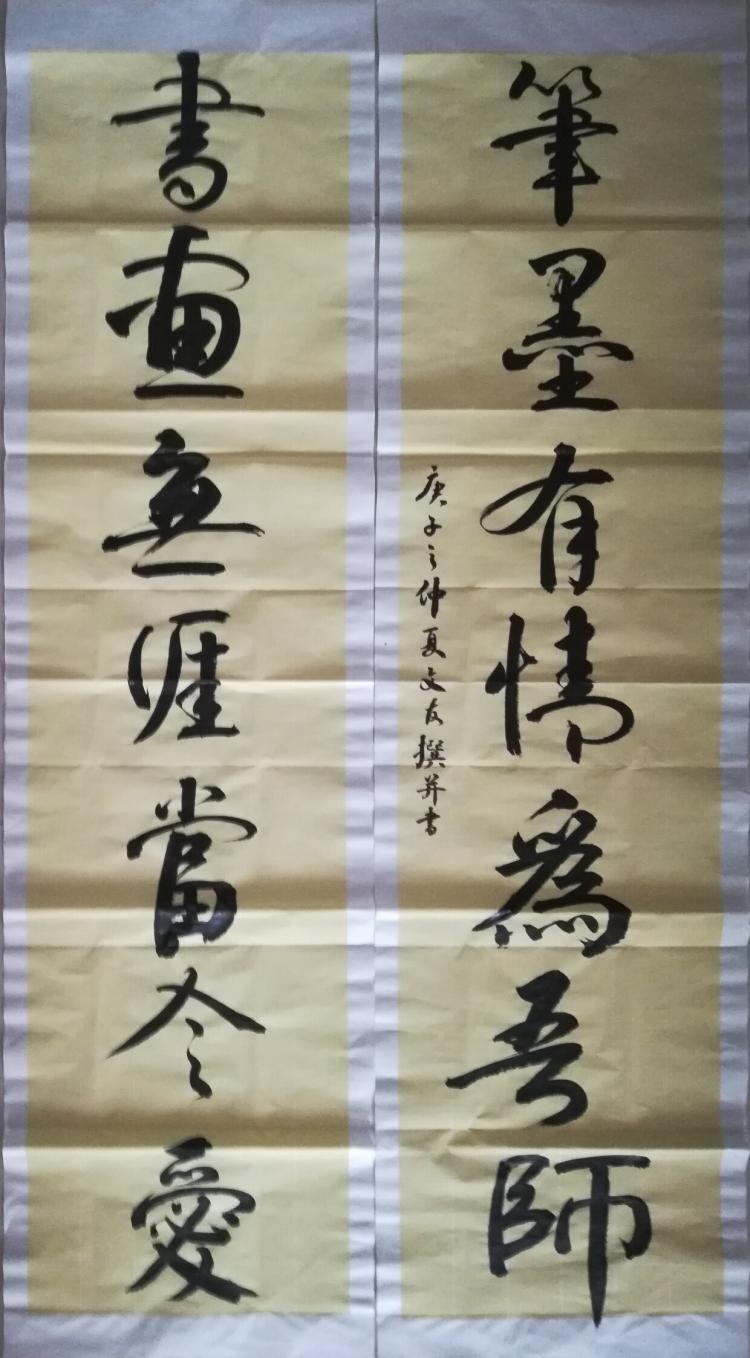 筆墨有情爲吾師
庚子之仲夏文友撰并書
書畫無涯當今愛